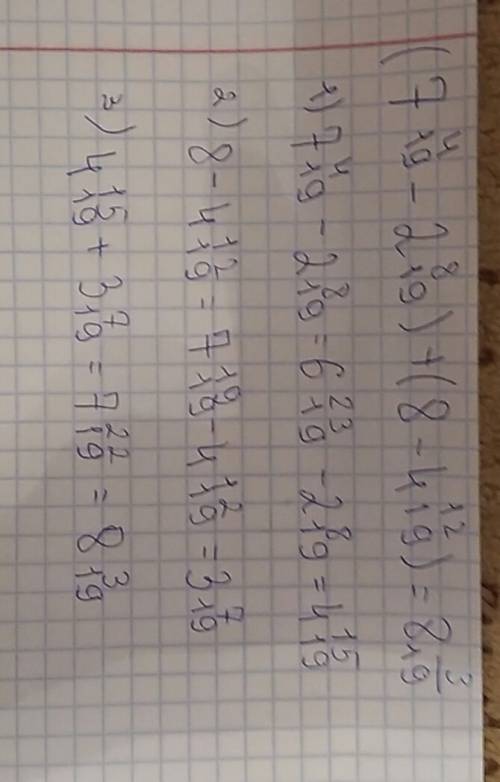 (7 4/19 - 2 8/19) + (8 - 4 12/19) = 8 3/19
1) 7 4/19 - 2 8/19 = 6 23/19 - 2 8/19 = 4 15/19
2) 8 - 4 12/19 = 7 19/19 - 4 12/19 = 3 7/19
3) 4 15/19 + 3 7/19 = 7 22/19 = 8 3/19